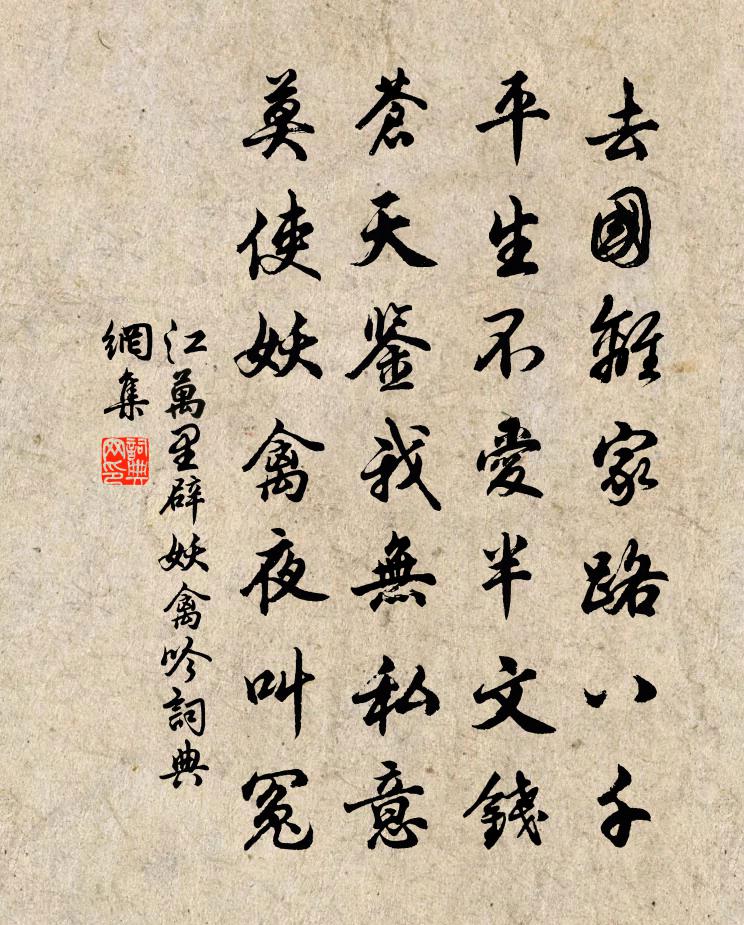 去國離家路八千
平生不愛半文錢
蒼天鉴我無私意
莫使妖禽夜叫冤
江萬里辟妖禽吟詞典
網集
詞典网印